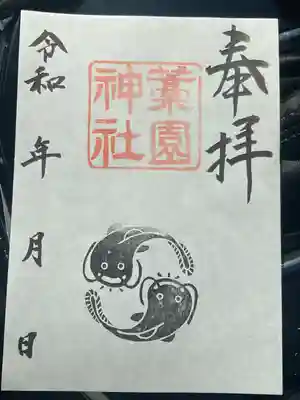 奉拝
葉園
神社
令和 年 月 日